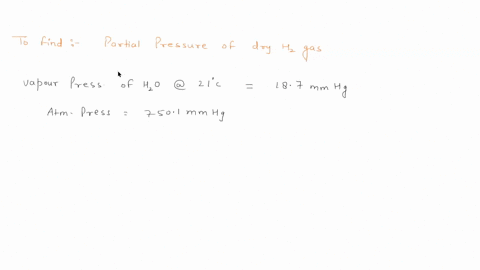 To find :- Partial Pressure of dry H₂ gas
Vapour Press of H₂O @ 21°C = 18.7 mm Hg
Atm. Press = 750.1 mm Hg